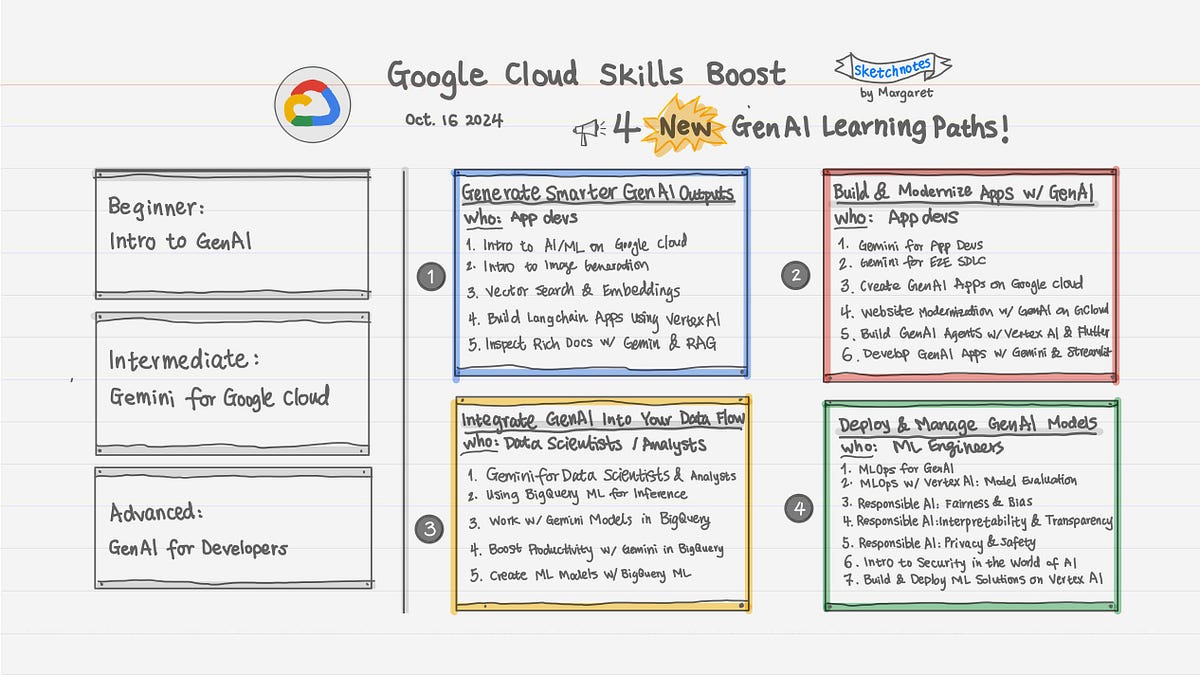 Google Cloud Skills Boost
Sketchnotes
by Margaret
Oct. 16 2024
4 New GenAI Learning Paths!
Beginner:
Intro to GenAI
Intermediate:
Gemini for Google Cloud
Advanced:
GenAI for Developers
1
Generate Smarter GenAI Outputs
who: App devs
1. Intro to AI/ML on Google Cloud
2. Intro to Image Generation
3. Vector Search & Embeddings
4. Build Langchain Apps using Vertex AI
5. Inspect Rich Docs w/ Gemin & RAG
2
Build & Modernize Apps w/ GenAI
who: App devs
1. Gemini for App Devs
2. Gemini for E2E SDLC
3. Create GenAI Apps on Google cloud
4. Website Modernization w/ GenAI on GCloud
5. Build GenAI Agents w/ Vertex AI & Flutter
6. Develop GenAI Apps w/ Gemini & Streamlit
3
Integrate GenAI Into Your Data Flow
who: Data Scientists / Analysts
1. Gemini for Data Scientists & Analysts
2. Using BigQuery ML for Inference
3. Work w/ Gemini Models in BigQuery
4. Boost Productivity w/ Gemini in BigQuery
5. Create ML Models w/ BigQuery ML
4
Deploy & Manage GenAI Models
who: ML Engineers
1. MLOps for GenAI
2. MLOps w/ Vertex AI: Model Evaluation
3. Responsible AI: Fairness & Bias
4. Responsible AI: Interpretability & Transparency
5. Responsible AI: Privacy & Safety
6. Intro to Security in the World of AI
7. Build & Deploy ML Solutions on Vertex AI